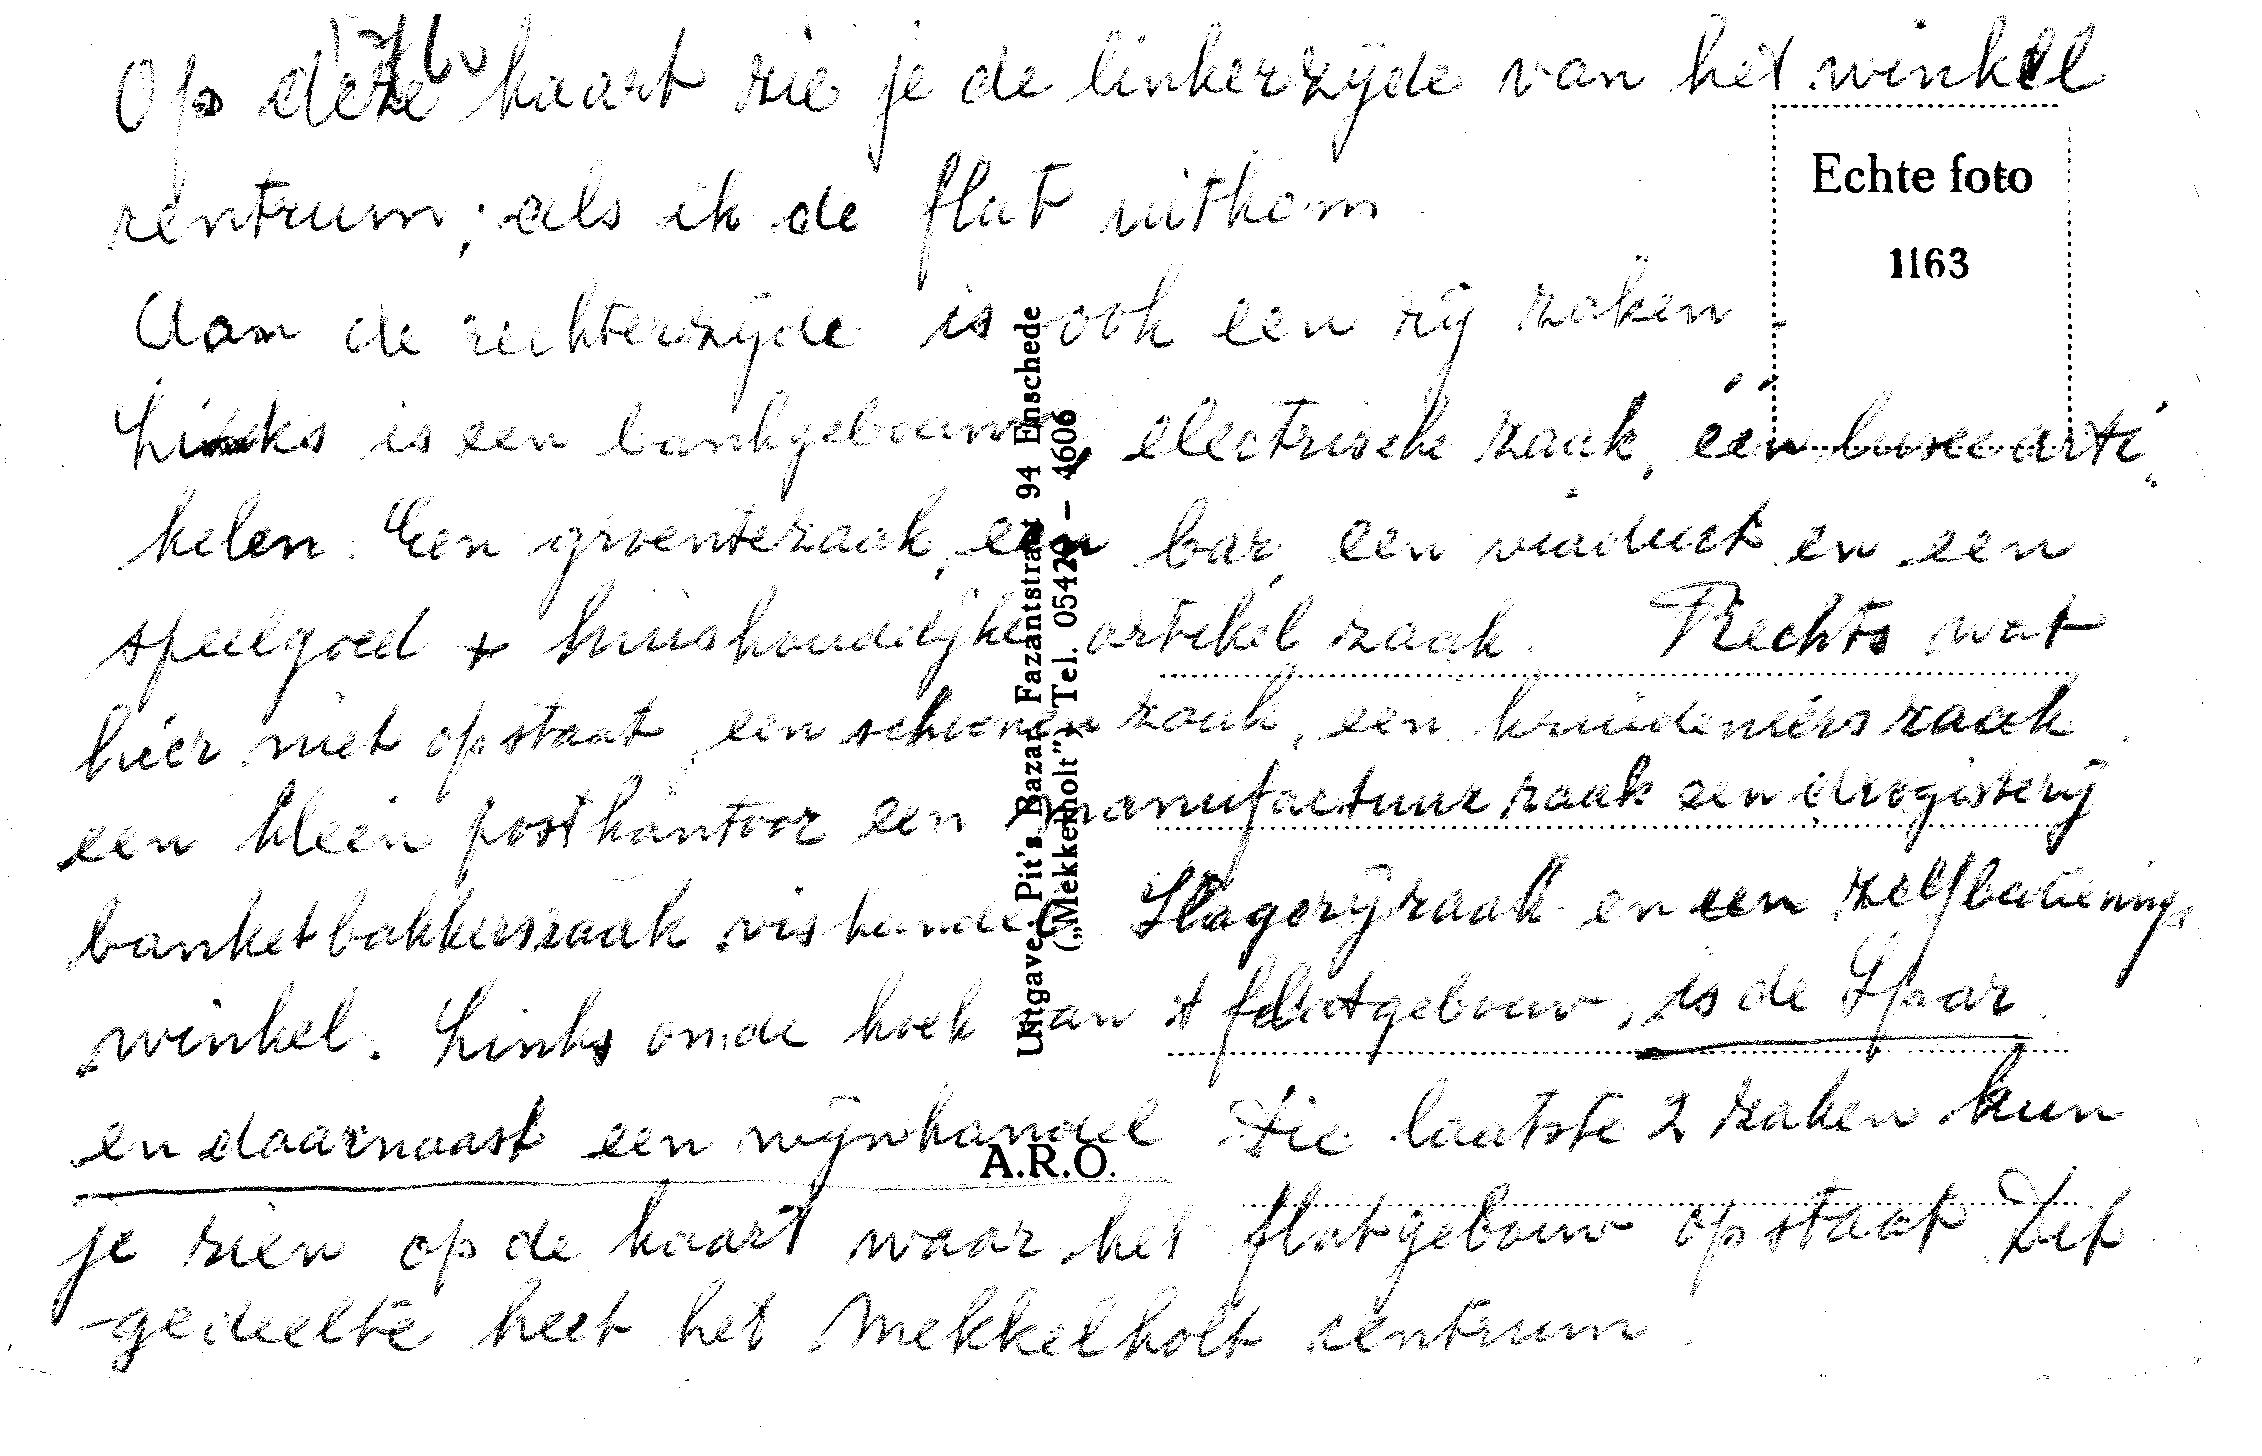 Op deze kaart zie je de linkerzijde van het winkel
zentrum; als ik de flat uitkom
Aan de rechterzijde is ook een rij zaken.
Links is een bankgebouw, electrische zaak, één luxe arti
kelen. Een groentezaak, een bar, een viaduct en een
speelgoed + huishoudelijke artikel zaak. Rechts wat
hier niet op staat, een schoenen zaak, een kruideniers zaak
een klein postkantoor een manufactuur zaak een drogisterij
banketbakkerszaak vishandel Slagerijzaak en een zelfbedienings
winkel. Links om de hoek van 't flatgebouw, is de Spar
en daarnaast een wijnhandel Die laatste 2 zaken kun
je zien op de kaart waar het flatgebouw op staat Dit
gedeelte heet het Mekkelholt centrum.
Echte foto
1163
Uitgave: Pit's Bazar, Fazantstraat 94 Enschede
(„Mekkelholt”) Tel. 05420 – 4606
A.R.O.